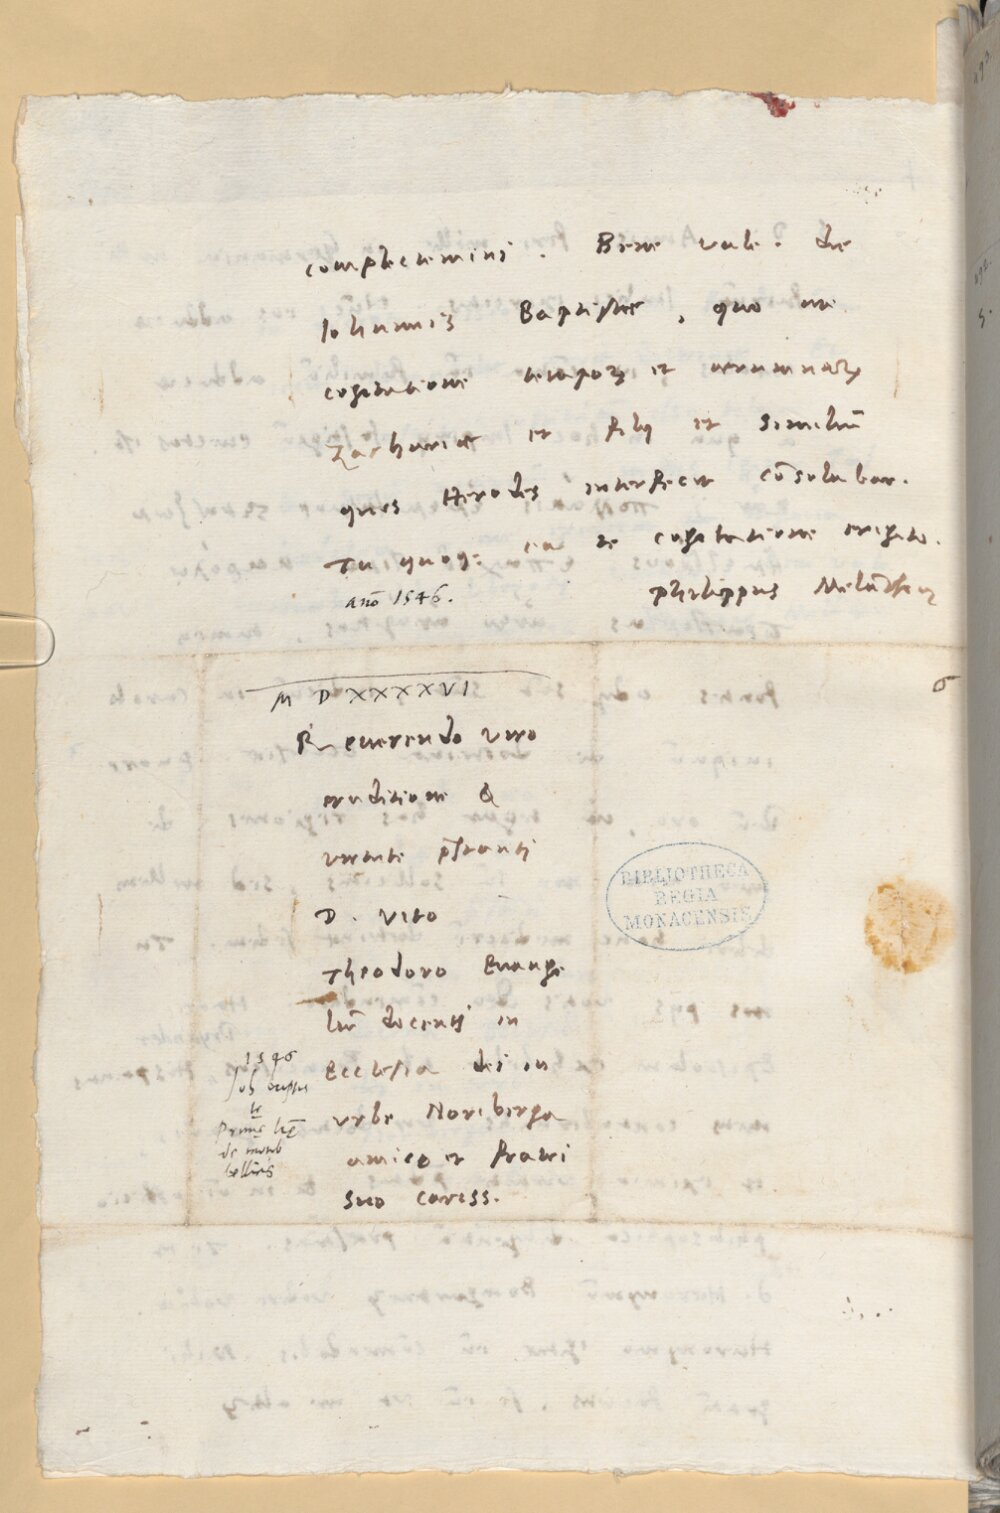 complectemini. Bene vale. die
Iohannis Baptistae, quo me
cogitatione temporū et aerumnarū
Zachariae et filij et similiū
quos Herodes interfecit cōsolabar.
Tu quoq: ea te cogitatione erigito.
anō 1546. philippus Melāthon
M D XXXXVI
Reverendo viro
eruditione &
virtute p̄stanti
D. Vito
Theodoro Evange
liū docenti in
Ecclesia dei in
urbe Noriberga
amico et fratri
suo cariss.
1546
de
bellicis
6
BIBLIOTHECA
REGIA
MONACENSIS